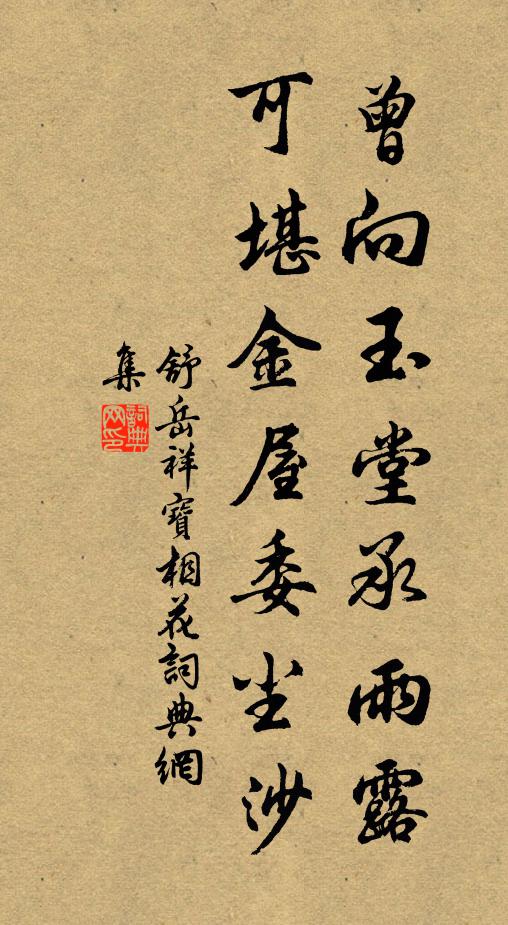 曾向玉堂承雨露
可堪金屋委尘沙
舒岳祥寶相花詞典網
集
詞典网印